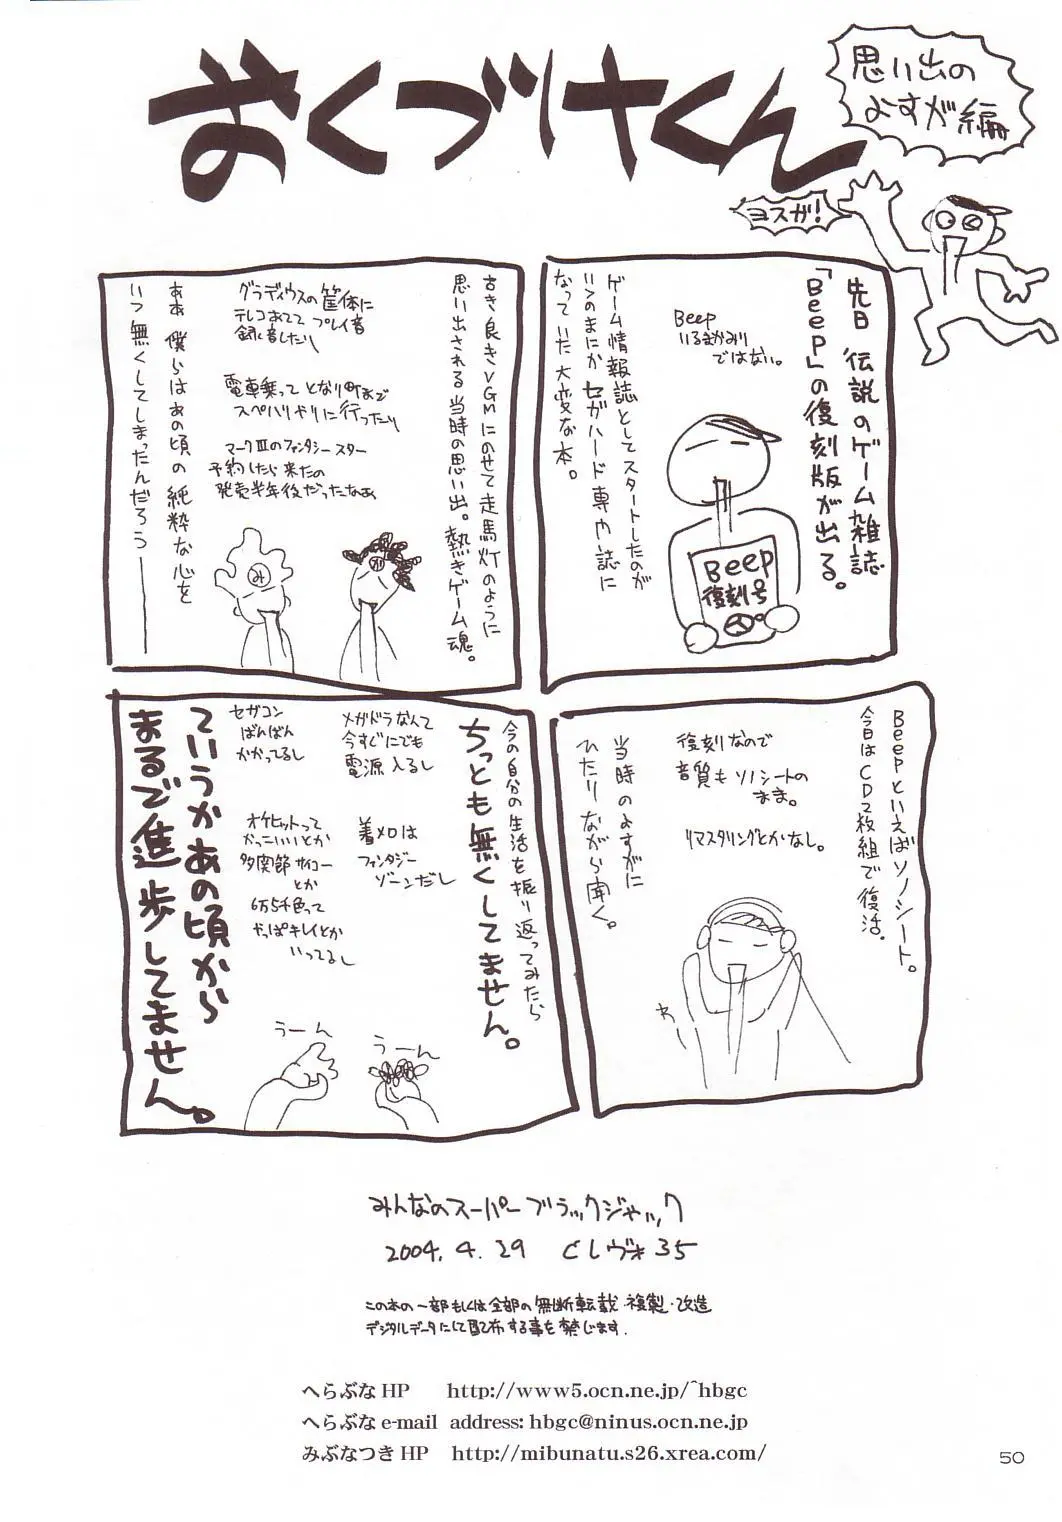 おくづけくん
思い出の
よすが編
ヨスガ!
先日 伝説のゲーム雑誌
「Beep」の復刻版が出る。
Beep
いるまかみり
ではない。
ゲーム情報誌としてスタートしたのが
いつのまにか セガハード専門誌に
なっていた大変な本。
Beep
復刻号
古き良きVGMにのせて走馬灯のように
思い出される当時の思い出。熱きゲーム魂。
グラディウスの筐体に
テレコあてて プレイ音
録音したり
電車乗って となり町まで
スペハリやりに行ったり
マークⅢのファンタシースター
予約したら来たの
発売半年後だったなぁ
ああ 僕らはあの頃の純粋な心を
いつ無くしてしまったんだろう――
み
み
Beepといえばソノシート。
今日はCD2枚組で復活。
復刻なので
音質も ソノシートの
まま。
リマスタリングとかなし。
当時のよすがに
ひたりながら聞く。
今の自分の生活を振り返ってみたら
ちっとも無くしてません。
メガドラなんて
今すぐにでも
電源入るし
着メロは
ファンタジー
ゾーンだし
セガコン
ばんばん
かかってるし
オケヒットって
かっこいいとか
多関節サイコー
とか
6万5千色って
やっぱキレイとか
いってるし
ていうかあの頃から
まるで進歩してません。
うーん
うーん
みんなのスーパーブラックジャック
2004.4.29 CLヴォ35
この本の一部もしくは全部の無断転載・複製・改造
デジタルデータにして配布する事を禁じます.
へらぶな HP http://www5.ocn.ne.jp/~hbgc
へらぶな e-mail address: hbgc@ninus.ocn.ne.jp
みぶなつき HP http://mibunatu.s26.xrea.com/
50